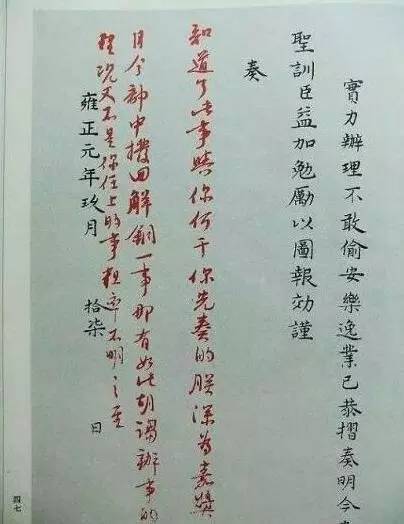 實力辦理不敢偷安樂逸業已恭摺奏明今
聖訓臣益加勉勵以圖報効謹
奏
知道了此事與你何干你先奏的朕深為嘉奬
目今部中撥回解銅一事那有如此胡講辦事的
理况又不是你任上的事粗率不明之至
雍正元年玖月 拾柒 日
四七